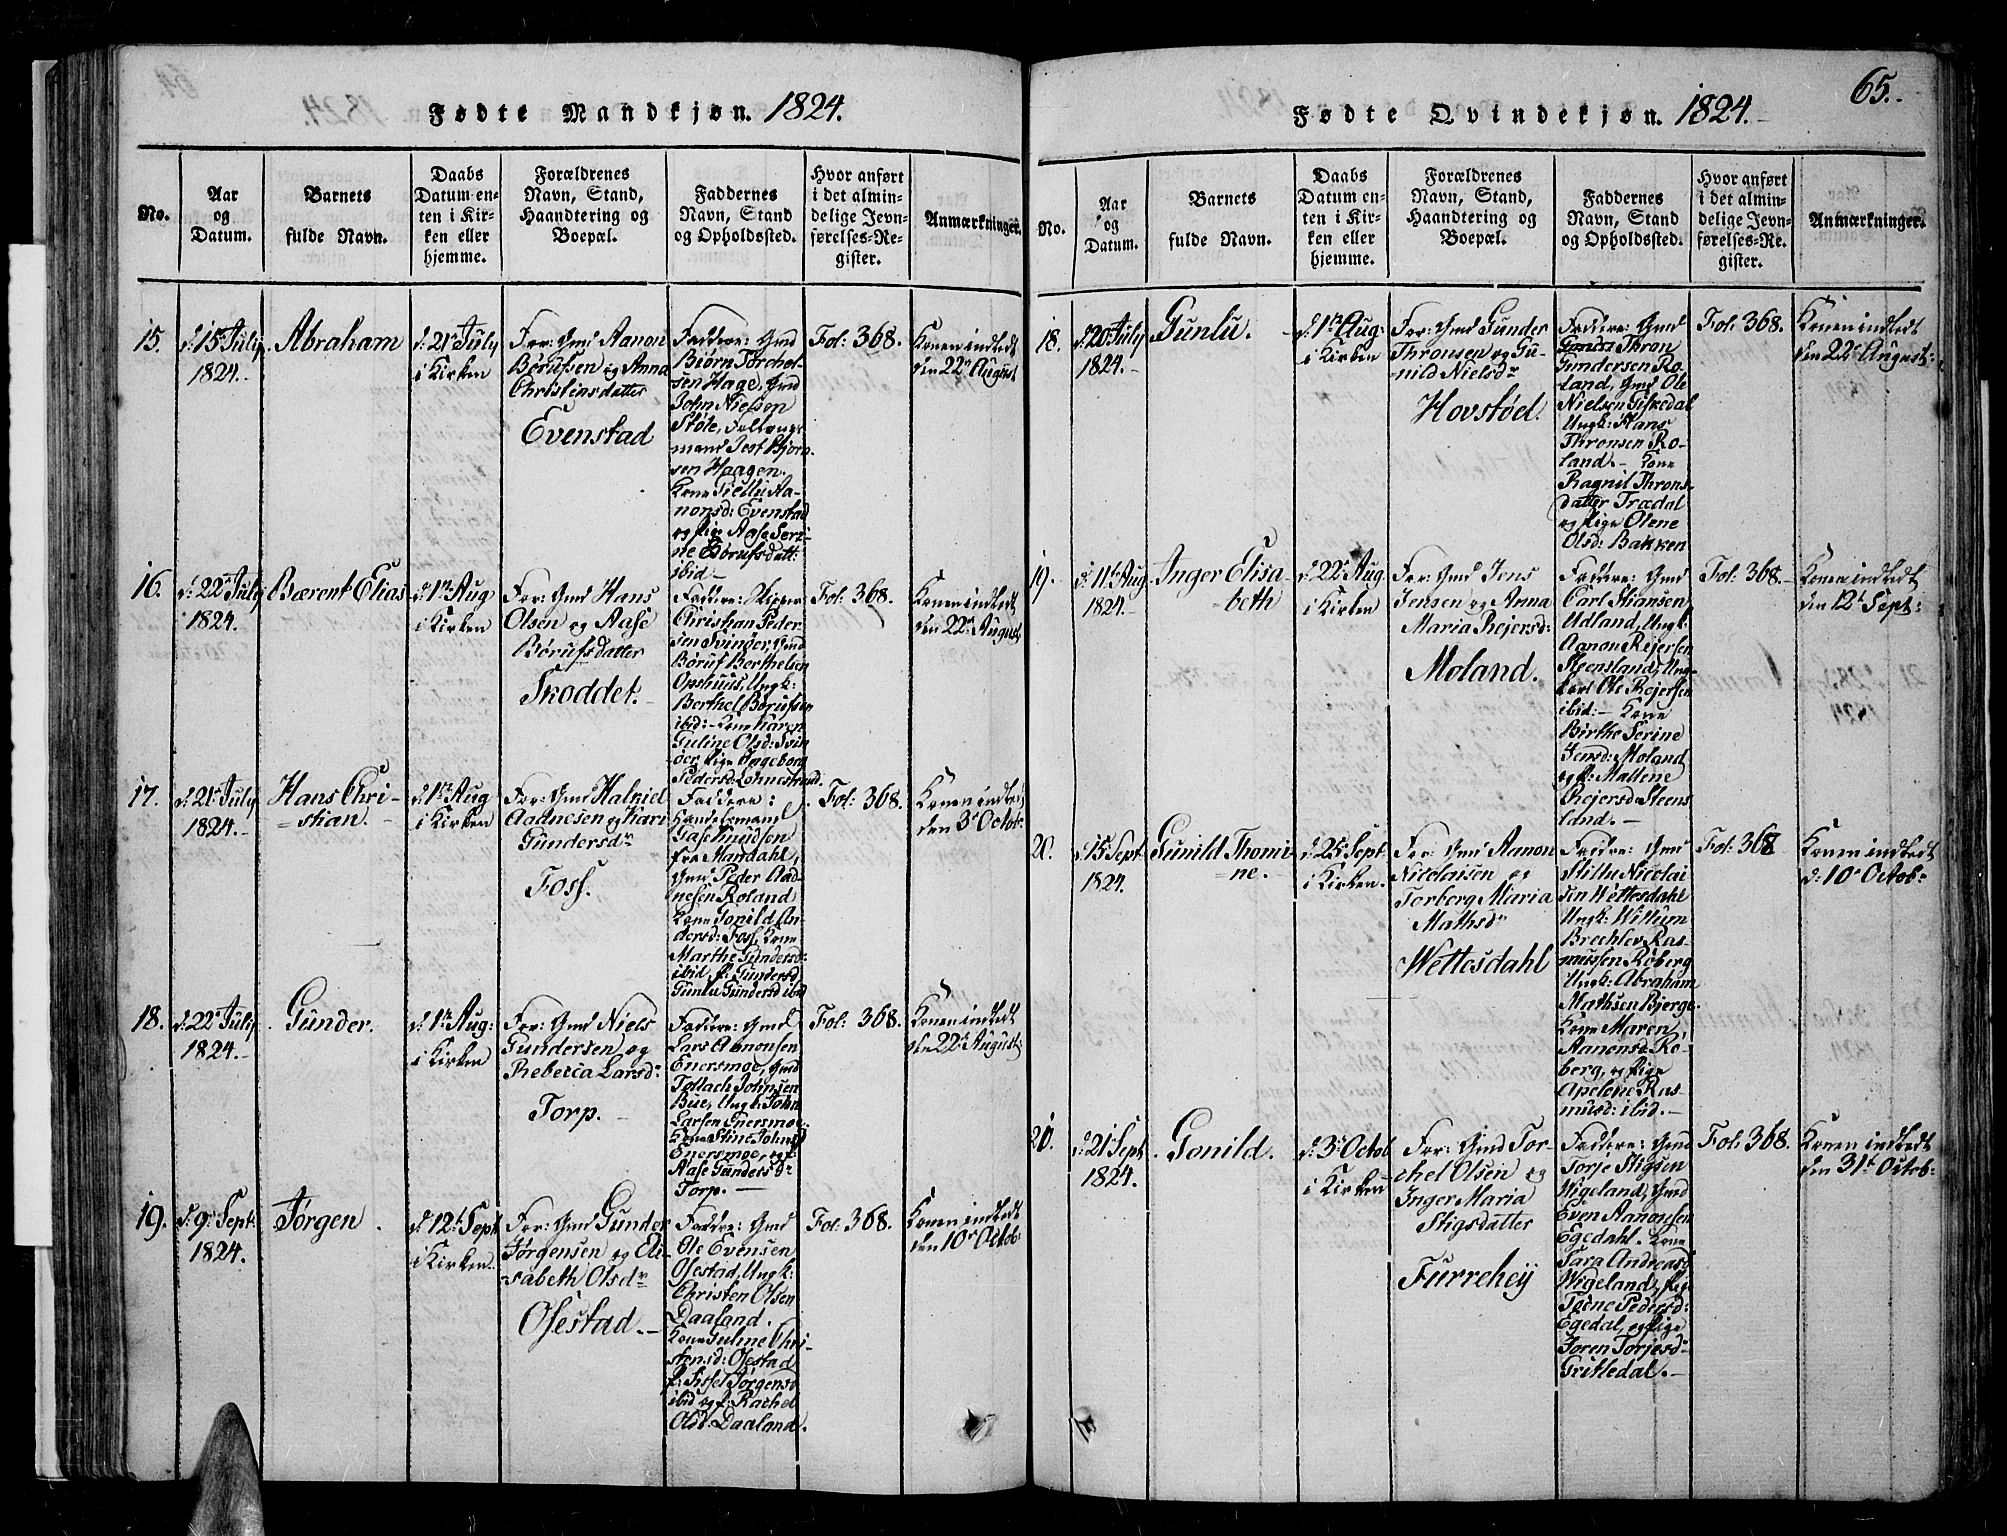 Fødte Mandkjøn. 1824.
No.
Aar
og
Datum.
Barnets
fulde Navn.
Daabs
Datum en-
ten i Kir-
ken eller
hjemme.
Forældrenes
Navn, Stand,
Haandtering og
Boepæl.
Faddernes
Navn, Stand
og Opholdssted.
Hvor anført
i det almin-
delige Jevn-
førelses-Re-
gister.
Anmærkninger.
15.
d: 15 July
1824.-
Abraham
d: 21 July
i Kirken
For: Gmd Aanon
Børufsen og Anna
Christensdatter
Evenstad
Faddere: Gmd
Biørn Torchel-
sen Hage, Gmd
John Nielsen
Støle,
mand Jest Bjørn-
sen Haagen.
Kone Siellu Aa-
nonsd: Evenstad
og Pige Aase Seri-
ne Børufsdatt:
ibid-
Fol: 368.
Konen indledt
den 22 August
16.
d: 22 July
1824.
Bærent Elias
d: 1 Aug
i Kirken
For: Gmd Hans
Olsen og Aase
Børufsdatter
Skoddet.
Faddere: Skipper
Christian Peder-
sen Svinøer, Gmd
Børuf Berthelsen
Opshuus, Ungk:
Berthel Børufsen
ibid:- Kone Karen
Guline Olsd: Svin-
øer, Pige Ingeborg
Pedersd: Lohnestrand
Fol: 368.
Konen indledt
den 22 August
17.
d: 21 July
1824.-
Hans Chri-
=stian.-
d: 1 Aug
i Kirken
For: Gmd Halkiel
Aadnesen og Kari
Gundersd
Foss.
Faddere:
Handelsmand
Gase Knudsen
fra Mandahl,
Gmd Peder Aad-
nesen Roland
Kone Gonild An-
dersd: Foss, Kone
Marthe Gundersd
ibid, p: Gundersd
Gunlu Gundersd ibid
Fol: 368.
Konen indledt
den 3 Octob:
18.
d: 22 July
1824.-
Gunder.
d: 1 Aug:
i Kirken
For: Gmd Niels
Gundersen og
Rebecca Larsd:
Torp.
Faddere: Gmd
Lars Aanonsen
Enersmoe, Gmd
Tollach Johnsen
Bue, Ungk: John
Larsen Enersmoe
Kone Stine Johnsd
Enersmoe, og p:
Aase Gundersd
Torp.-
Fol: 368.
Konen indledt
den 22 August
19.
d: 9 Sept:
1824.
Jørgen
d: 12 Sept
i Kirken.
For: Gmd Gunder
Jørgensen og Eli-
sabeth Olsd
Osestad.-
Faddere: Gmd
Ole Evensen
Osestad, Ungk:
Christen Olsen
Daaland.
Kone Guline Chri-
stensd: Osestad
p: Sissel Jørgensd
ibid og p: Rachel
Olsd: Daaland.
Fol: 368.
Konen indledt
den 10 Octob:
65.
Fødte Qvindekjøn. 1824.
No.
Aar
og
Datum.
Barnets
fulde Navn.
Daabs
Datum en-
ten i Kir-
ken eller
hjemme.
Forældrenes
Navn, Stand,
Haandtering og
Boepæl.
Faddernes
Navn, Stand
og Opholdssted.
Hvor anført
i det almin-
delige Jevn-
førelses-Re-
gister.
Anmærkninger.
18.
d: 20 July
1824.-
Gunlu.
d: 1 Aug:
i Kirken
For: Gmd Gunder
Thronsen og Gu-
nild Nielsd
Hovstøel.
Faddere: Gmd
Thron
Gundersen Ro-
land, Gmd Ole
Nielsen Fiskedal
Ungk: Hans
Thronsen Ro-
land.- Kone
Ragnil Throns-
datter Trædal
og Pige Olene
Olsd: Bakken
Fol: 368.
Konen indledt
den 22 August:
19.
d: 11 Aug
1824.-
Inger Elisa-
=beth
d: 22 Aug
i Kirken
For: Gmd Jens
Jensen og Anna
Maria Rejersd:
Moland.
Faddere: Gmd
Carl Stiansen
Udland, Ungk:
Aanon Rejersen
Steensland, Ung-
karl Ole Rejersen
ibid:- Kone
Birthe Serine
Jensd: Moland
og p: Mallene
Rejersd: Steens-
land.-
Fol: 368.
Konen indledt
den 12 Sept:
20.
d: 15 Sept
1824.
Gunild Thomi-
ne.-
d: 25 Sept
i Kirken.
For: Gmd Aanon
Nicolaisen og
Torborg Maria
Mathsd
Wettesdahl
Faddere: Gmd
Stillu Nicolai-
sen Wettesdahl
Ungk: Willum
Brechlev Ras-
mussen Røberg
Ungk: Abraham
Mathsen Bjerge
Kone Maren
Aanonsd Rø-
berg, og Pige
Apelone Ras-
musd: ibid.-
Fol: 368
Konen indledt
d: 10 Octob:
20.
d: 21 Sept
1824.
Gonild.
d: 3 Octob
i Kirken
For: Gmd Tor-
chel Olsen og
Inger Maria
Stigsdatter
Furrehey
Faddere: Gmd
Torje Stigsen
Wigeland, Gmd
Even Aanonsen
Egedahl. Kone
Sara Andreasd
Wigeland, Pige
Tørne Pedersd:
Egedal, og Pige
Joren Torjesd
Gritledal.-
Fol: 368.
Konen indledt
den 31 Octob: